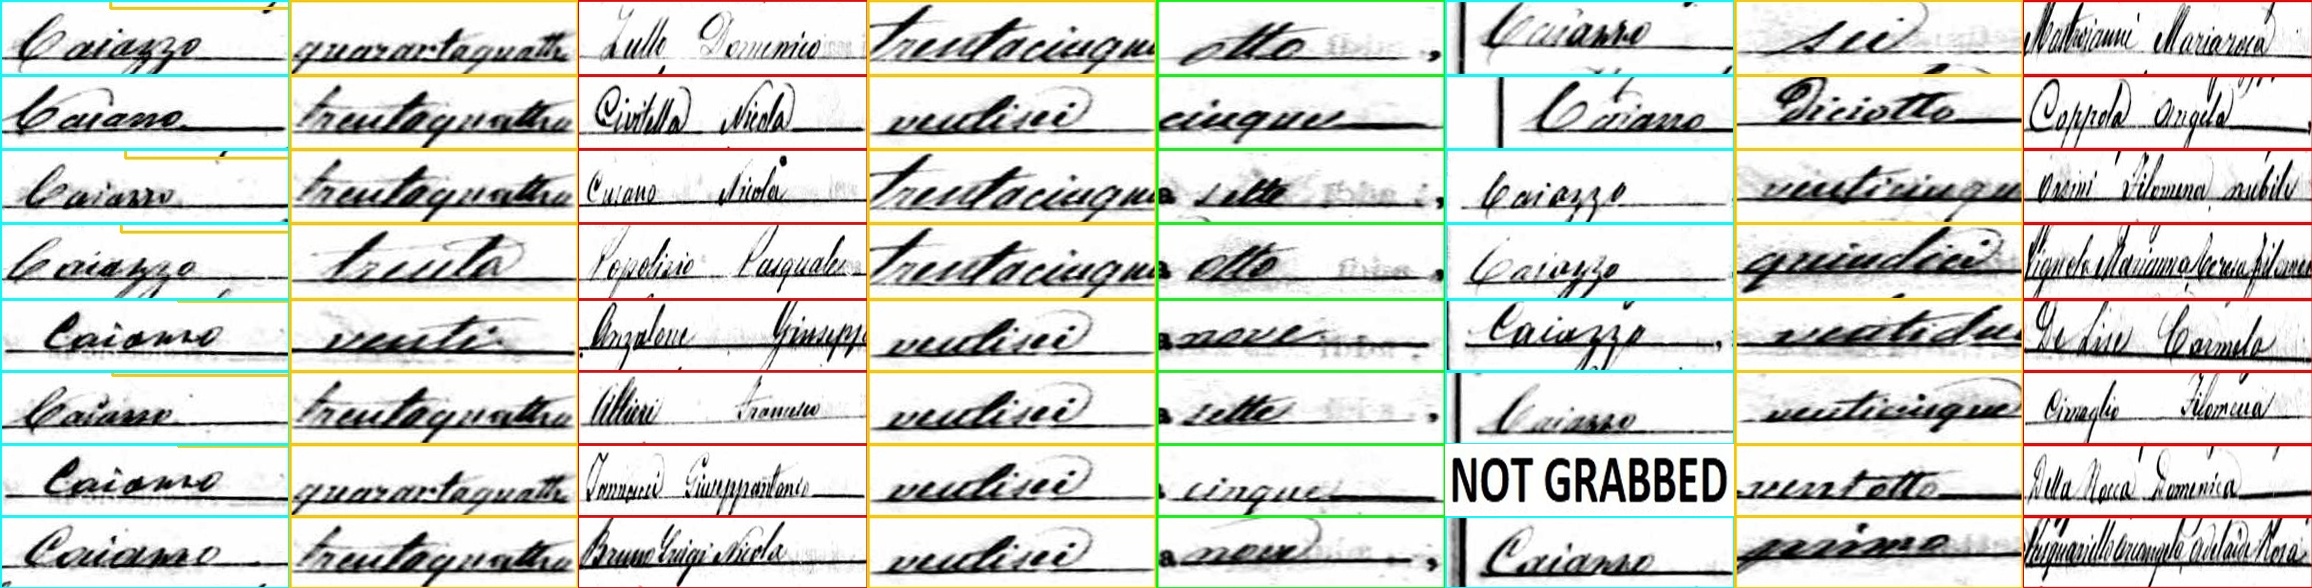 Caiazzo quarantaquattro Zullo Domenico trentacinque otto , Caiazzo sei Mastroianni Mariarosa
Caiazzo trentaquattro Civitella Nicola ventisei cinque Caiazzo Diciotto Coppola Angela
Caiazzo trentaquattro Cusano Nicola trentacinque sette , Caiazzo venticinque Orsini Filomena nubile
Caiazzo trenta Popolizio Pasquale trentacinque otto Caiazzo quindici
Caiazzo venti Anzalone Giuseppe ventisei nove Caiazzo , ventidue De Lise Carmela
Caiazzo trentaquattro Altieri Francesco ventisei sette , Caiazzo venticinque Filomena
Caiazzo quarantaquattro Iannucci Giuseppantonio ventisei cinque NOT GRABBED ventotto Della Rocca Domenica
Caiazzo trentaquattro Bruno Luigi Nicola ventisei nove , Caiazzo primo Arcangela Adelaide Rosa